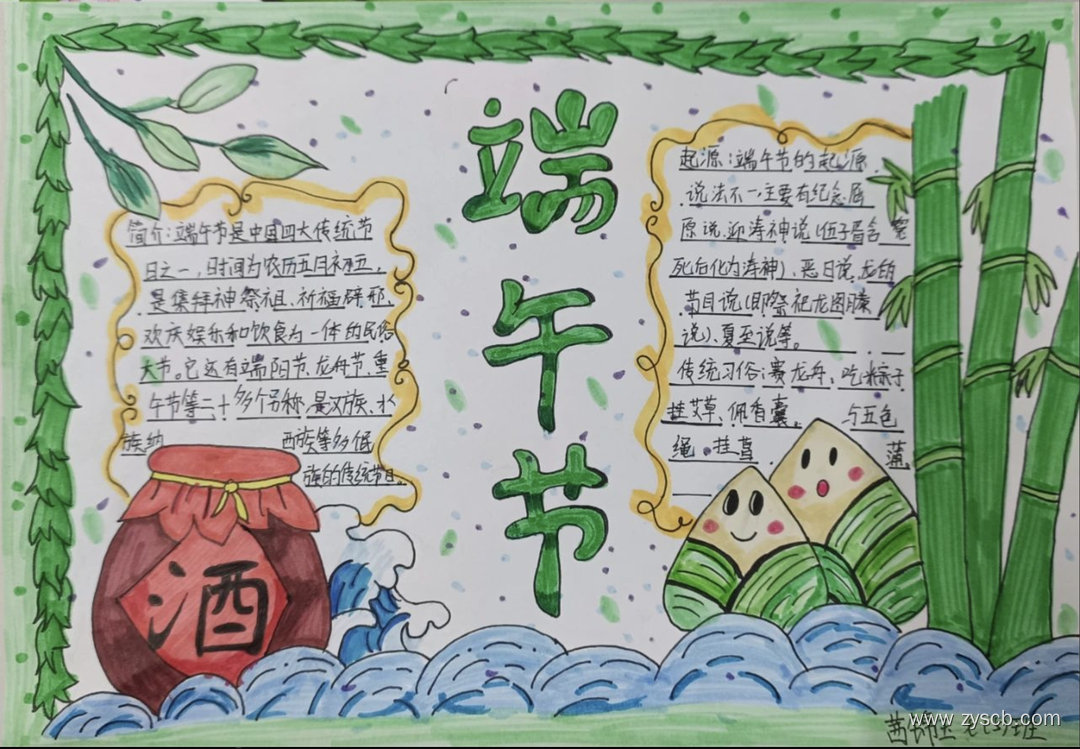 端午节
简介：端午节是中国四大传统节
日之一，时间为农历五月初五，
是集拜神祭祖、祈福辟邪、
欢庆娱乐和饮食为一体的民俗
大节。它还有端阳节、龙舟节、重
午节等二十多个别称，是汉族、水
族纳 西族等多民
族的传统节日。
酒
起源：端午节的起源
说法不一，主要有纪念屈
原说、迎涛神说（伍子胥含冤
死后化为涛神）、恶日说、龙的
节日说（即祭祀龙图腾
说）、夏至说等。
传统习俗：赛龙舟、吃粽子
挂艾草、佩香囊、 与五色
绳、挂菖 蒲
www.zyscb.com